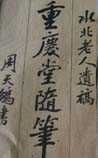 水北老人遺稿
重慶堂隨筆
周天鵬書